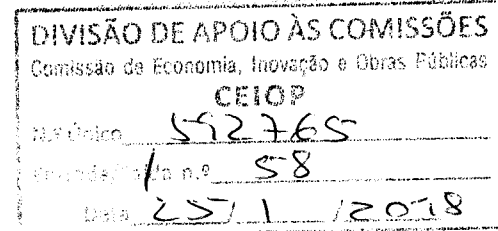 DIVISÃO DE APOIO ÀS COMISSÕES
Comissão de Economia, Inovação e Obras Públicas
CEIOP
N.º Único 592765
/Saída n.º 58
Data 25/ 1 /2018